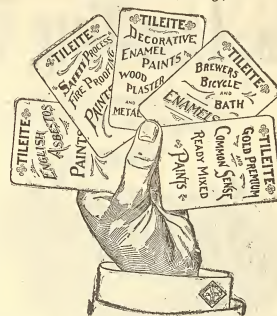 TILEITE
ENGLISH
ASBESTOS
PAINTS
TILEITE
SMITH PROCESS
FIRE PROOFING
PAINTS
TILEITE
DECORATIVE
ENAMEL
PAINTS FOR
WOOD
PLASTER
AND
METAL
TILEITE
BREWERS
BICYCLE
AND
BATH
ENAMELS
TILEITE
GOLD PREMIUM
AND
COMMON SENSE
READY MIXED
PAINTS